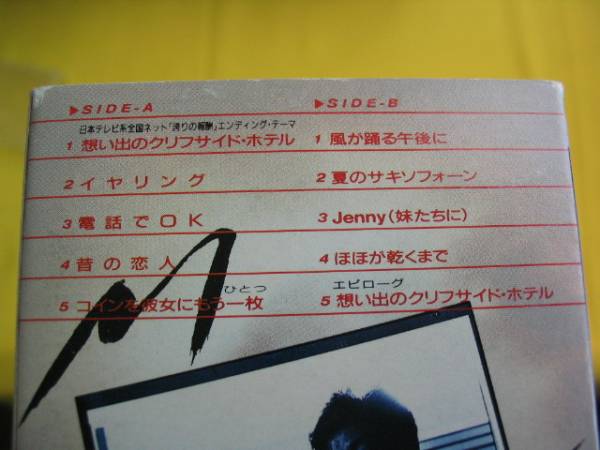 ▶SIDE-A
日本テレビ系全国ネット「誇りの報酬」エンディング・テーマ
1 想い出のクリフサイド・ホテル
2 イヤリング
3 電話でOK
4 昔の恋人
ひとつ
5 コインを彼女にもう一枚
▶SIDE-B
1 風が踊る午後に
2 夏のサキソフォーン
3 Jenny(妹たちに)
4 ほほが乾くまで
エピローグ
5 想い出のクリフサイド・ホテル